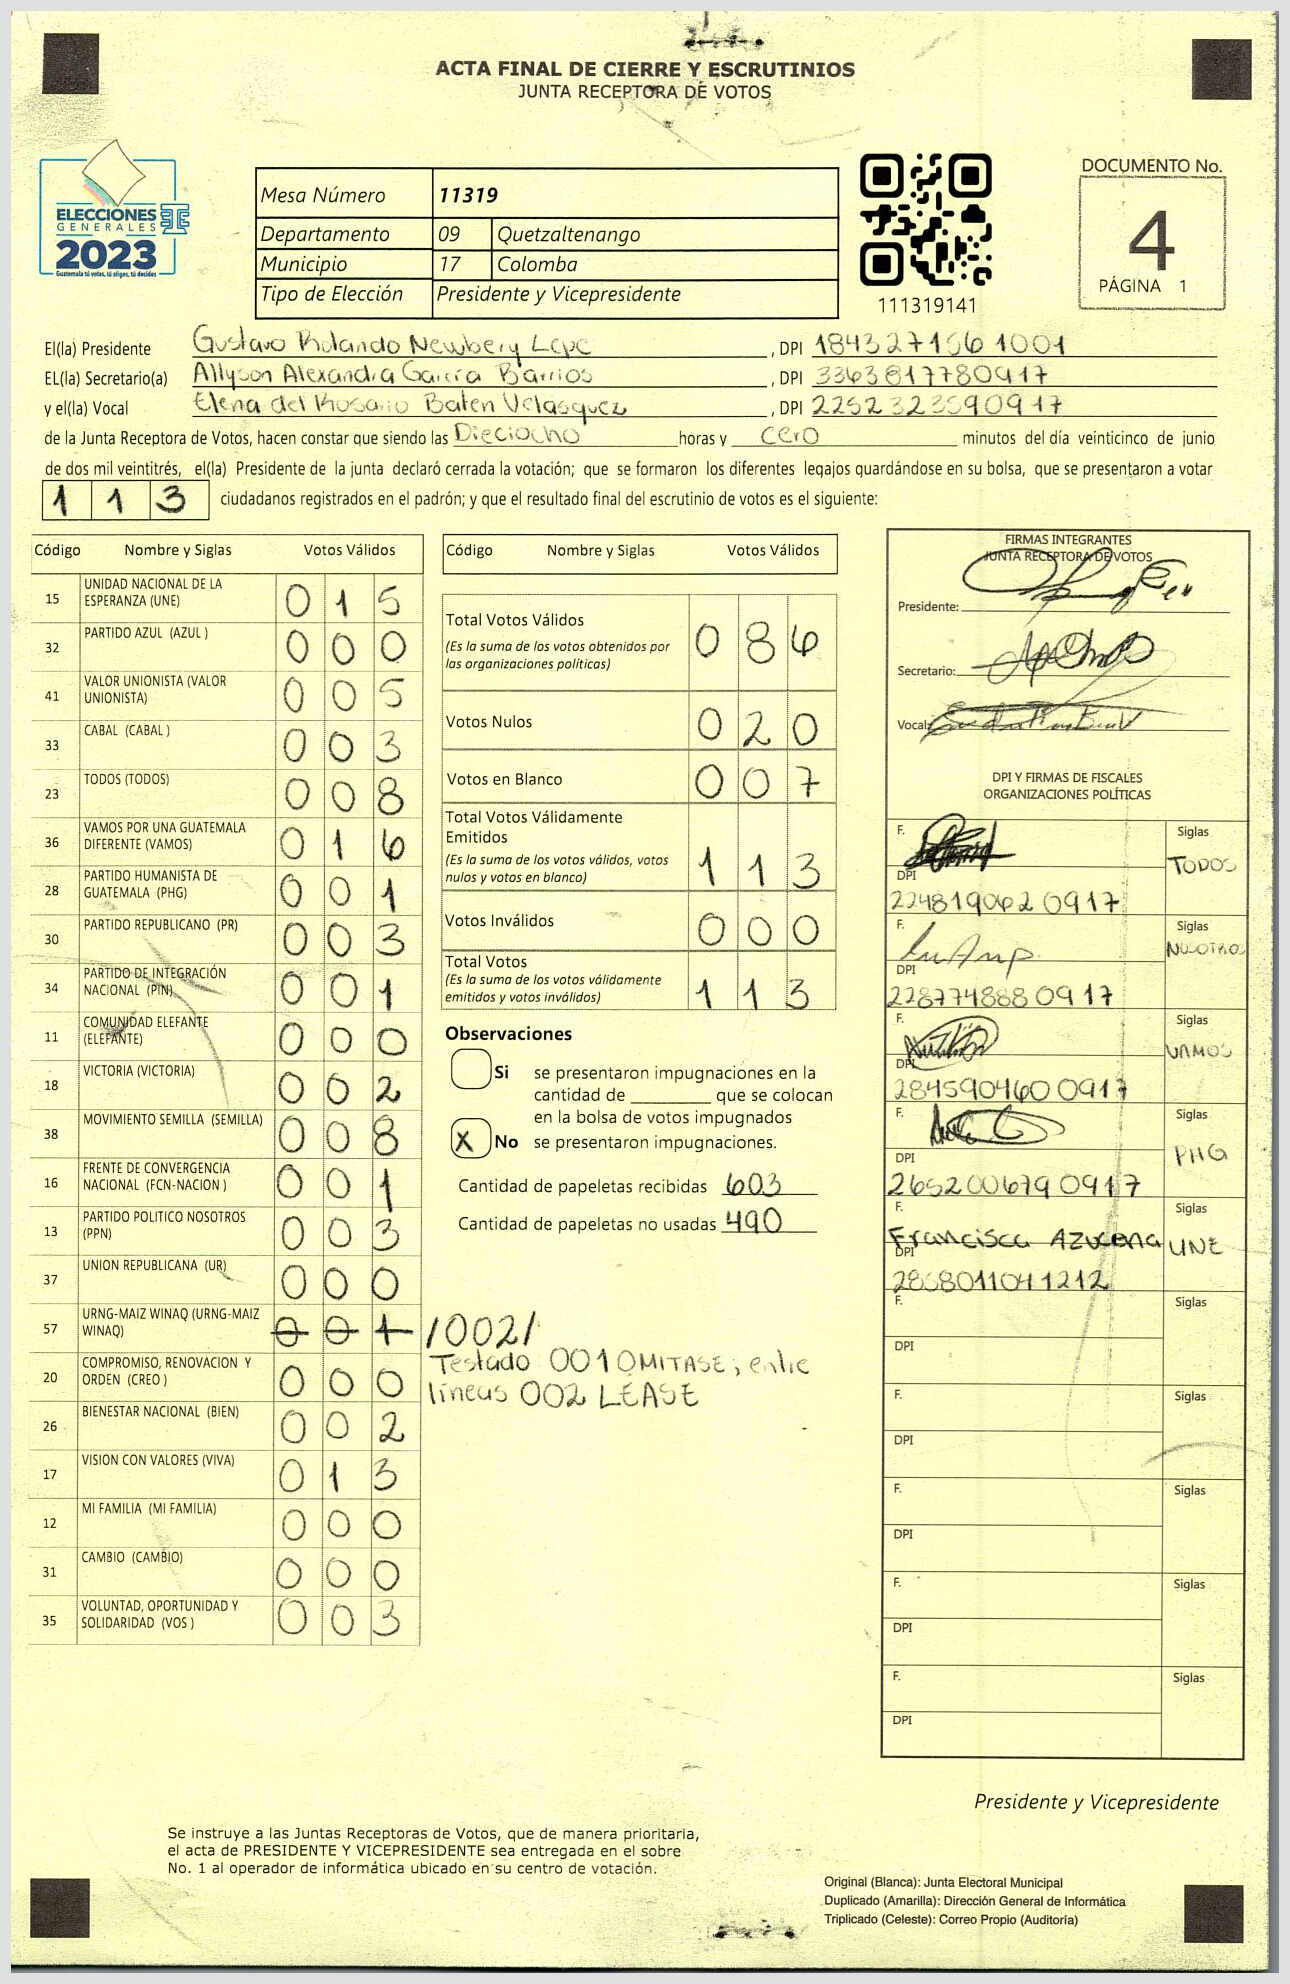 ACTA FINAL DE CIERRE Y ESCRUTINIOS
JUNTA RECEPTORA DE VOTOS
ELECCIONES
GENERALES
2023
Guatemala tú votas, tú eliges, tú decides
Mesa Número 11319
Departamento 09 Quetzaltenango
Municipio 17 Colomba
Tipo de Elección Presidente y Vicepresidente
111319141
DOCUMENTO No.
4
PÁGINA 1
El(la) Presidente Gustavo Rolando Newbery , DPI 1843271561001
EL(la) Secretario(a) Allyson Alexandra García Barrios , DPI 3363817780917
y el(la) Vocal Elena del Rosario Baten Velasquez , DPI 2252323590917
de la Junta Receptora de Votos, hacen constar que siendo las Dieciocho horas y cero minutos del día veinticinco de junio
de dos mil veintitrés, el(la) Presidente de la junta declaró cerrada la votación; que se formaron los diferentes legajos guardándose en su bolsa, que se presentaron a votar
113 ciudadanos registrados en el padrón; y que el resultado final del escrutinio de votos es el siguiente:
Código Nombre y Siglas Votos Válidos
15 UNIDAD NACIONAL DE LA ESPERANZA (UNE) 015
32 PARTIDO AZUL (AZUL ) 000
41 VALOR UNIONISTA (VALOR UNIONISTA) 005
33 CABAL (CABAL ) 003
23 TODOS (TODOS) 008
36 VAMOS POR UNA GUATEMALA DIFERENTE (VAMOS) 016
28 PARTIDO HUMANISTA DE GUATEMALA (PHG) 001
30 PARTIDO REPUBLICANO (PR) 003
34 PARTIDO DE INTEGRACIÓN NACIONAL (PIN) 001
11 COMUNIDAD ELEFANTE (ELEFANTE) 000
18 VICTORIA (VICTORIA) 002
38 MOVIMIENTO SEMILLA (SEMILLA) 008
16 FRENTE DE CONVERGENCIA NACIONAL (FCN-NACION ) 001
13 PARTIDO POLITICO NOSOTROS (PPN) 003
37 UNION REPUBLICANA (UR) 000
57 URNG-MAIZ WINAQ (URNG-MAIZ WINAQ) 001 /002/
Testado 001 OMITASE; entre
líneas 002 LEASE
20 COMPROMISO, RENOVACION Y ORDEN (CREO ) 000
26 BIENESTAR NACIONAL (BIEN) 002
17 VISION CON VALORES (VIVA) 013
12 MI FAMILIA (MI FAMILIA) 000
31 CAMBIO (CAMBIO) 000
35 VOLUNTAD, OPORTUNIDAD Y SOLIDARIDAD (VOS ) 003
Código Nombre y Siglas Votos Válidos
Total Votos Válidos 086
(Es la suma de los votos obtenidos por
las organizaciones políticas)
Votos Nulos 020
Votos en Blanco 007
Total Votos Válidamente
Emitidos 113
(Es la suma de los votos válidos, votos
nulos y votos en blanco)
Votos Inválidos 000
Total Votos 113
(Es la suma de los votos válidamente
emitidos y votos inválidos)
Observaciones
Si se presentaron impugnaciones en la
cantidad de ________ que se colocan
en la bolsa de votos impugnados
X No se presentaron impugnaciones.
Cantidad de papeletas recibidas 603
Cantidad de papeletas no usadas 490
FIRMAS INTEGRANTES
JUNTA RECEPTORA DE VOTOS
Presidente:
Secretario:
Vocal:
DPI Y FIRMAS DE FISCALES
ORGANIZACIONES POLÍTICAS
F. Siglas
TODOS
DPI
2248190620917
F. Siglas
NOSOTROS
DPI
2287748880917
F. Siglas
VAMOS
DPI
2845904600917
F. Siglas
PHG
DPI
2652006790917
F. Siglas
Francisca Azucena UNE
DPI
2858011041212
F. Siglas
DPI
F. Siglas
DPI
F. Siglas
DPI
F. Siglas
DPI
F. Siglas
DPI
Presidente y Vicepresidente
Se instruye a las Juntas Receptoras de Votos, que de manera prioritaria,
el acta de PRESIDENTE Y VICEPRESIDENTE sea entregada en el sobre
No. 1 al operador de informática ubicado en su centro de votación.
Original (Blanca): Junta Electoral Municipal
Duplicado (Amarilla): Dirección General de Informática
Triplicado (Celeste): Correo Propio (Auditoría)